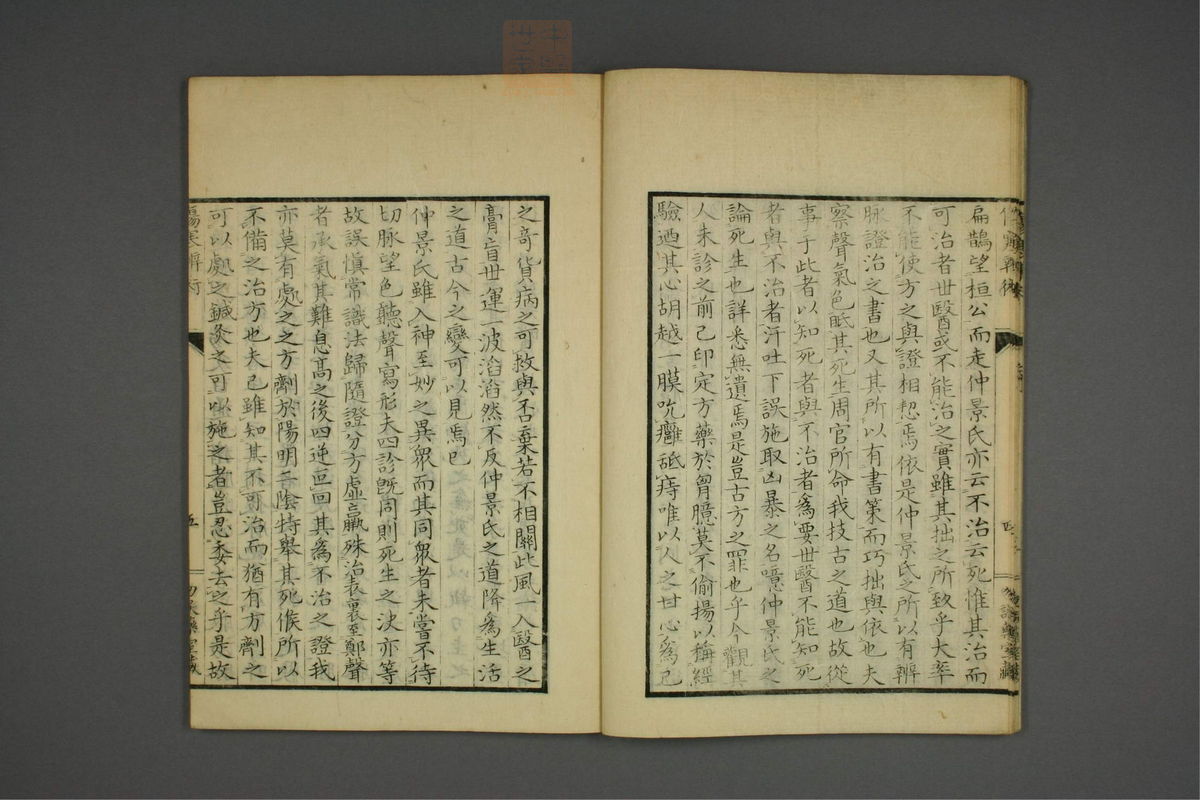 扁鵲望桓公而走仲景氏亦云不治云死惟其治而
可治者世醫或不能治之實雖其拙之所致乎大率
不能使方之與證相愬焉依是仲景氏之所以有辨
脉證治之書也又其所以有書策而巧拙與依也夫
察聲氣色眡其死生周官所命我技古之道也故從
事于此者以知死者與不治者為要世醫不能知死
者與不治者汗吐下誤施取凶暴之名噫仲景氏之
論死生也詳悉無遺焉是豈古方之罪也乎今觀其
人未診之前已印定方藥於胷臆莫不偷揚以稱經
驗迺其心胡越一膜吮癰舐痔唯以人之甘心為己
之奇貨病之可救與否棄若不相關此風一入醫之
膏肓世運一波滔滔然不反仲景氏之道降為生活
之道古今之變可以見焉已
仲景氏雖入神至妙之異衆而其同衆者未嘗不待
切脉望色聽聲寫形夫四診旣同則死生之決亦等
故誤愼常識法歸隨證分方虛羸殊治表裏至鄭聲
者承氣其難息高之後四逆亟回其為不治之證我
亦莫有處之之方劑於陽明三陰特舉其死候所以
不備之治方也夫已雖知其不可治而猶有方劑之
可以處之鍼灸之可以施之者豈忍委去之乎是故
五